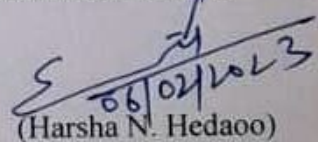 06/02/2023
(Harsha N. Hedaoo)